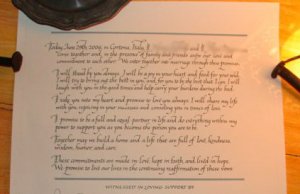 Friday, June 29th, 2009, in Cortona, Italy, I and I
come together and, in the presence of family and friends, enter our vow and
commitment to each other. We enter together into marriage through these promises.
I will stand by you always. I will be a joy to your heart, and food for your soul.
I will try to bring out the best in you and, for you to be the best that I can. I will
laugh with you in the good times and help carry your burdens during the bad.
I take you into my heart and promise to love you always. I will share my life
with you, rejoicing in your successes and consoling you in times of loss.
I promise to be a full and equal partner in life and do everything within my
power to support you as you become the person you are to be.
Together may we build a home and a life that are full of love, kindness,
wisdom, humor and care.
These commitments are made in love, kept in faith, and lived in hope.
We promise to live our lives in the continuing reaffirmation of these vows
WITNESSED IN LOVING SUPPORT BY